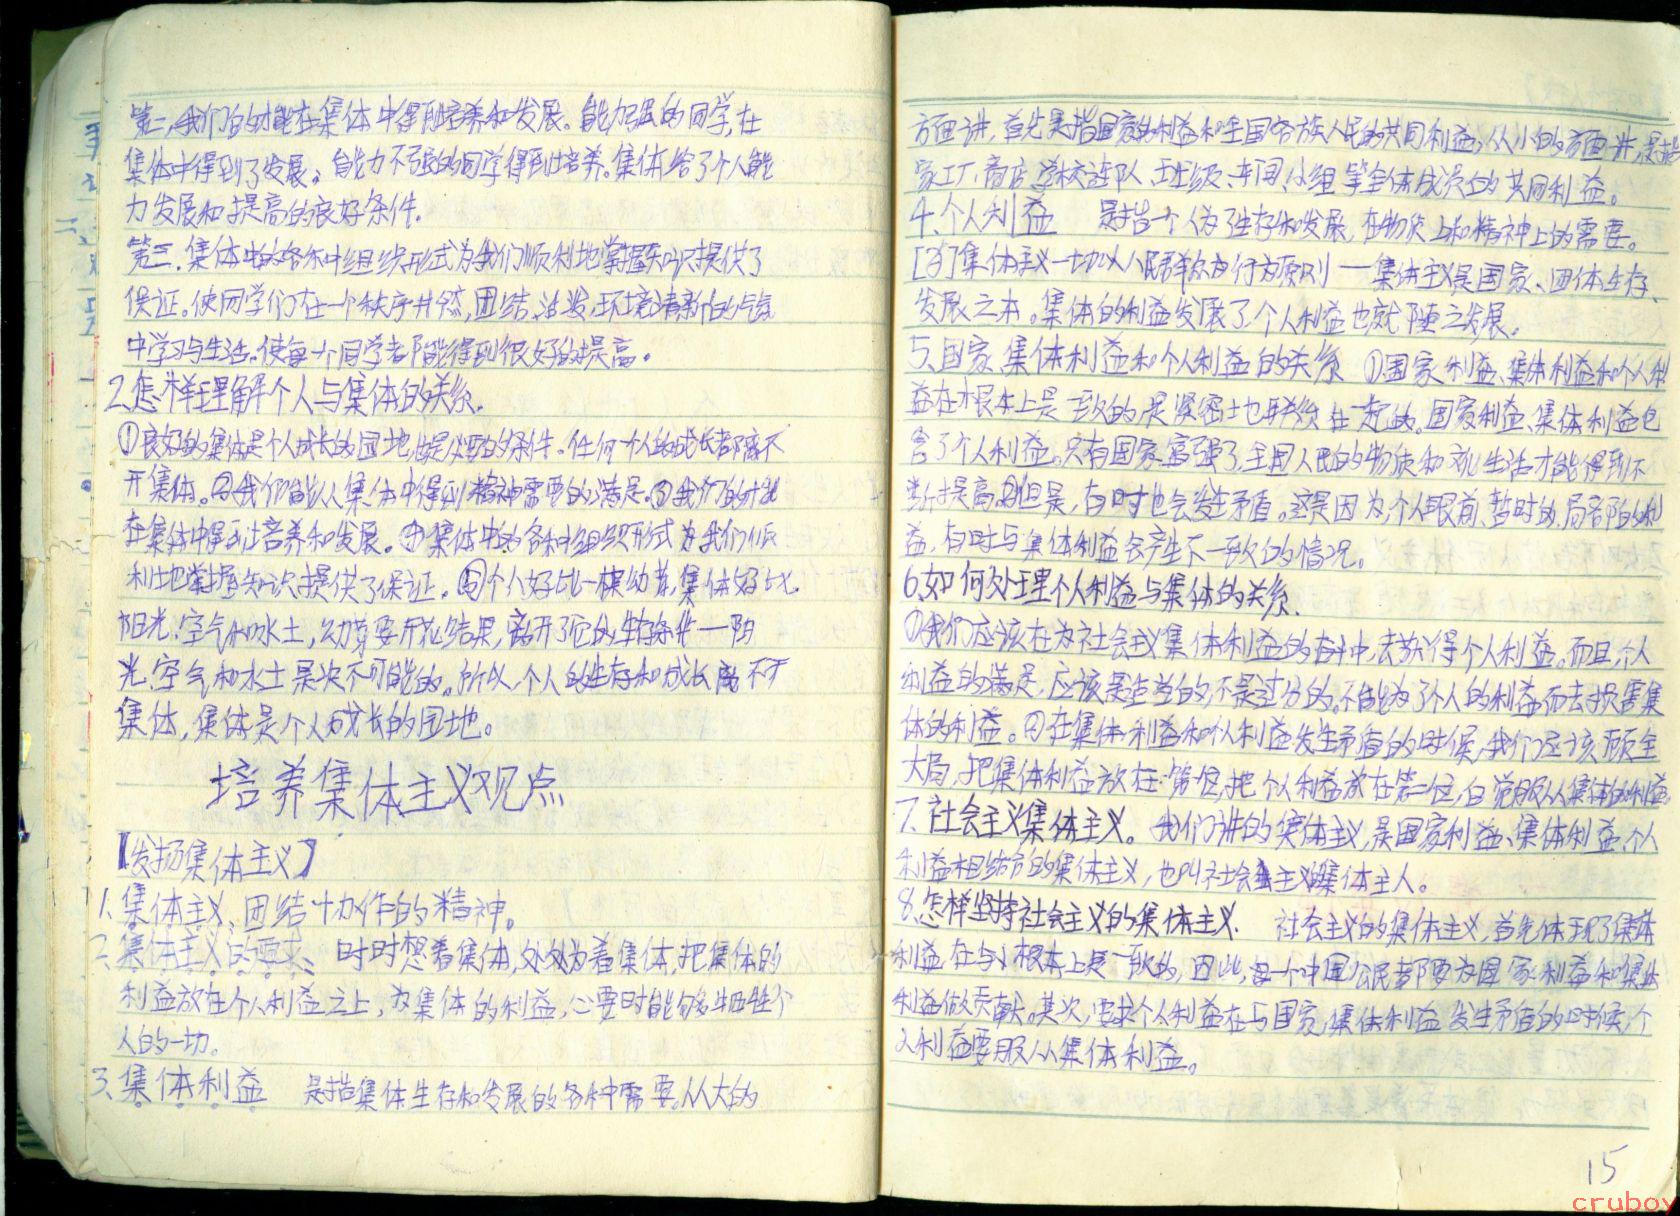 第二,我们的才能在集体中得到培养和发展。能力强的同学,在
集体中得到了发展。自能力不强的同学得到培养。集体给了个人能
力发展和提高的良好条件.
第三.集体中的各种组织形式为我们顺利地掌握知识提供了
保证。使同学们在一个秩序井然,团结,活泼,环境清新的气氛
中学习与生活。使每一个同学都能得到很好的提高。
2.怎样理解个人与集体的关系.
①良好的集体是个人成长的园地,也是必要的条件。任何一个人的成长都离不
开集体。②我们能从集体中得到精神需要的满足。③我们的才能
在集体中得到培养和发展。④集体中的各种组织形式为我们顺
利地掌握知识提供了保证。⑤个人好比一棵幼芽,集体好比
阳光.空气和水土,幼芽要开花结果,离开了它的生物条件——阳
光.空气和水土是决不可能的。所以,个人的生存和成长离不开
集体,集体是个人成长的园地。
培养集体主义观点
【发扬集体主义】
1.集体主义、团结协作的精神。
2.集体主义的要求、时时想着集体,处处为着集体,把集体的
利益放在个人利益之上,为集体的利益,必要时能够牺牲个
人的一切。
3.集体利益 是指集体生存和发展的各种需要。从大的
方面讲,首先是指国家的利益和全国各族人民的共同利益;从小的方面讲,是指
家工厂、商店、学校连队、班级、车间、小组等全体成员的共同利益。
4.个人利益 是指一个人为了生存和发展,在物质上和精神上的需要。
集体主义一切以人民群众为行为原则——集体主义是国家、团体生存、
发展之本。集体的利益发展了个人利益也就随之发展。
5.国家,集体利益和个人利益的关系 ①国家利益、集体利益和个人利
益在根本上是一致的,是紧密地联系在一起的。国家利益、集体利益包
含了个人利益。只有国家富强了,全国人民的物质和文化生活才能得到不
断提高。②但是,有时也会发生矛盾。这是因为,个人眼前、暂时的,局部的利
益,有时与集体利益会产生不一致的情况。
6.如何处理个人利益与集体的关系.
①我们应该在为社会主义集体利益的奋斗中,去获得个人利益。而且,个人
利益的满足,应该是适当的,不是过分的。不能为了个人的利益而去损害集
体的利益。②在集体利益和个人利益发生矛盾的时候,我们应该顾全
大局,把集体利益放在第一位,把个人利益放在第二位,自觉服从集体的利益.
7.社会主义集体主义。我们讲的集体主义,是国家利益、集体利益,个人
利益相结合的集体主义,也叫社会主义集体主人。
8.怎样坚持社会主义的集体主义. 社会主义的集体主义,首先体现了集体
利益在与个根本上是一致的,因此,每一个中国公民都要为国家利益和集体
利益做贡献。其次,要求个人利益在与国家,集体利益发生矛盾的时候,个
人利益要服从集体利益。
15
cruboy